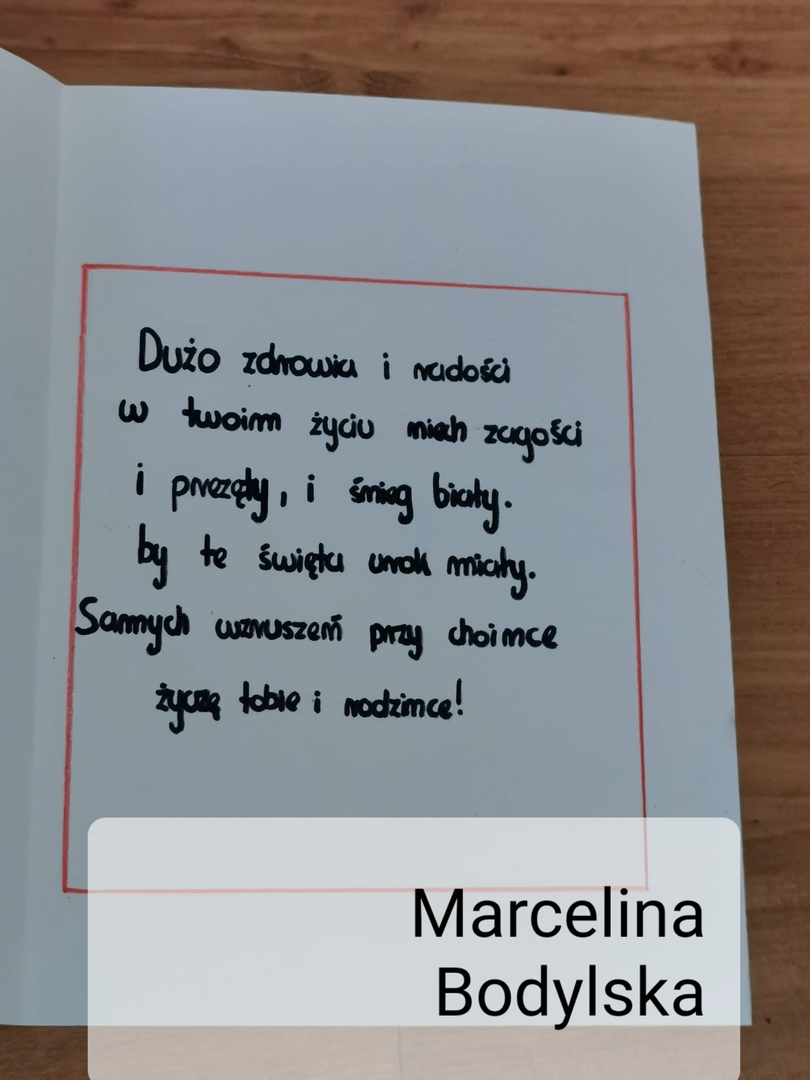 Dużo zdrowia i radości
w twoim życiu niech zagości
i prezęty, i śnieg biały.
by te święta urok miały.
Samych wzruszeń przy choince
życzę tobie i rodzince!
Marcelina
Bodylska